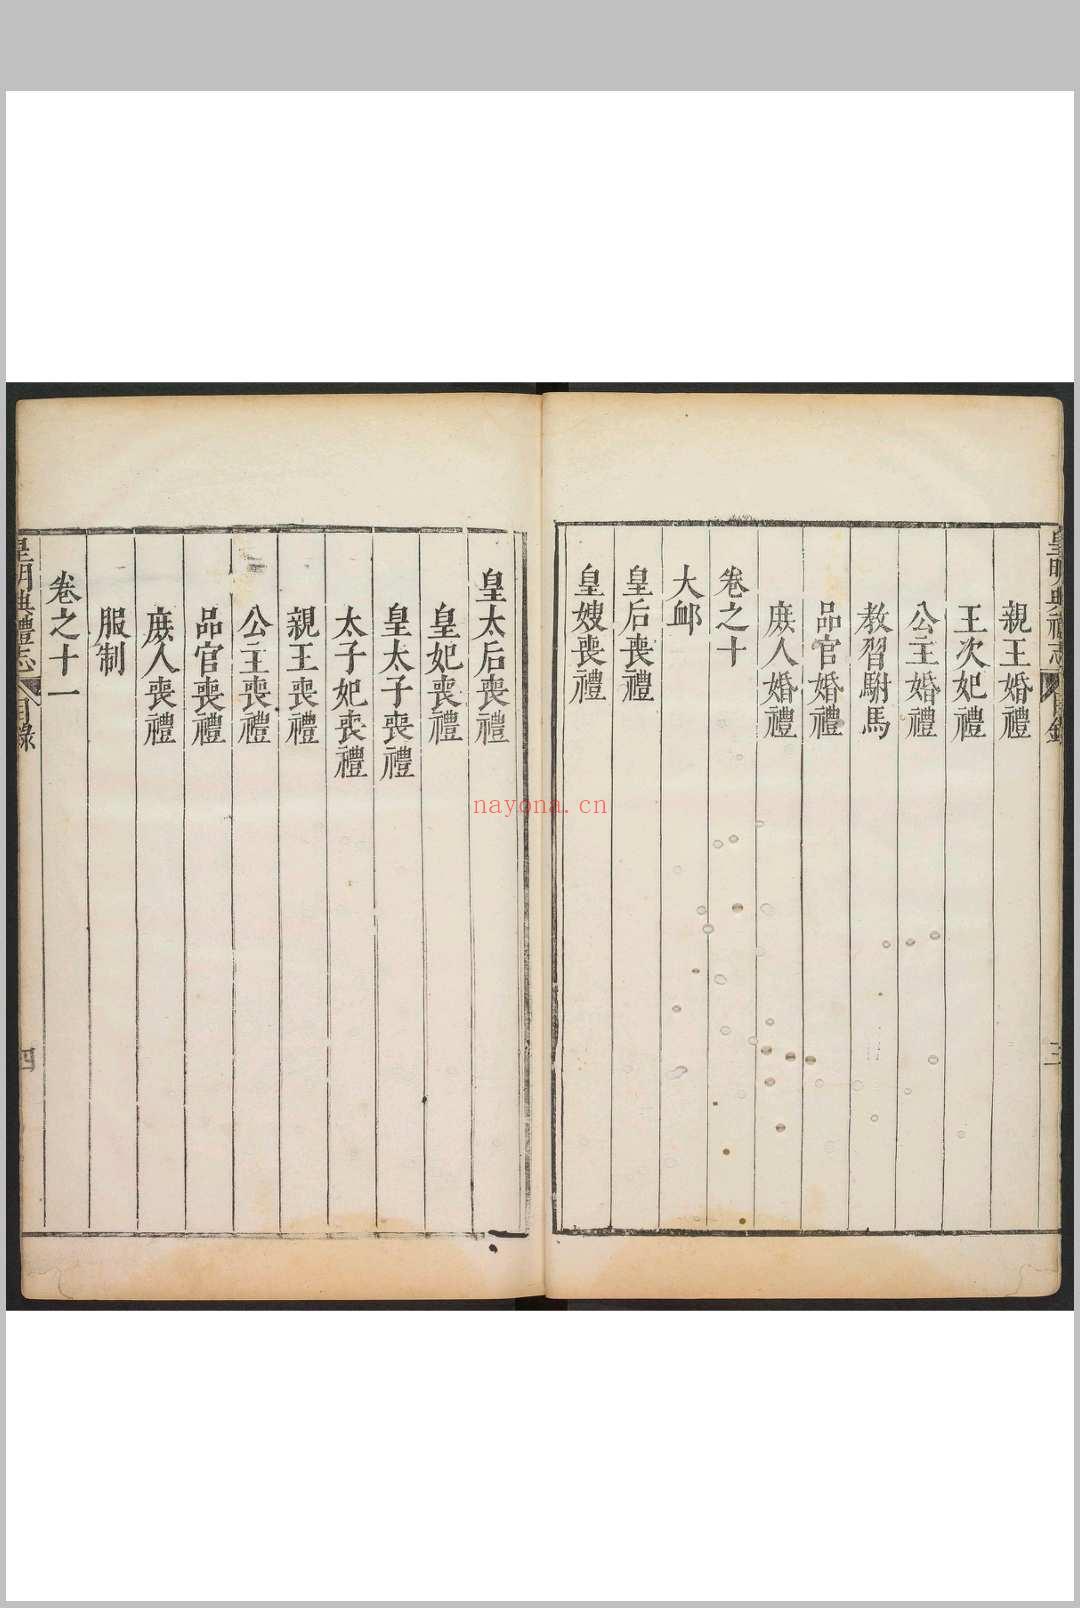 皇明典禮志
目錄
三
親王婚禮
王次妃禮
公主婚禮
教習駙馬
品官婚禮
庶人婚禮
卷之十
大䘏
皇后喪禮
皇嫂喪禮
皇太后喪禮
皇妃喪禮
皇太子喪禮
太子妃喪禮
親王喪禮
公主喪禮
品官喪禮
庶人喪禮
服制
卷之十一
皇明典禮志
目錄
四
nayona.cn